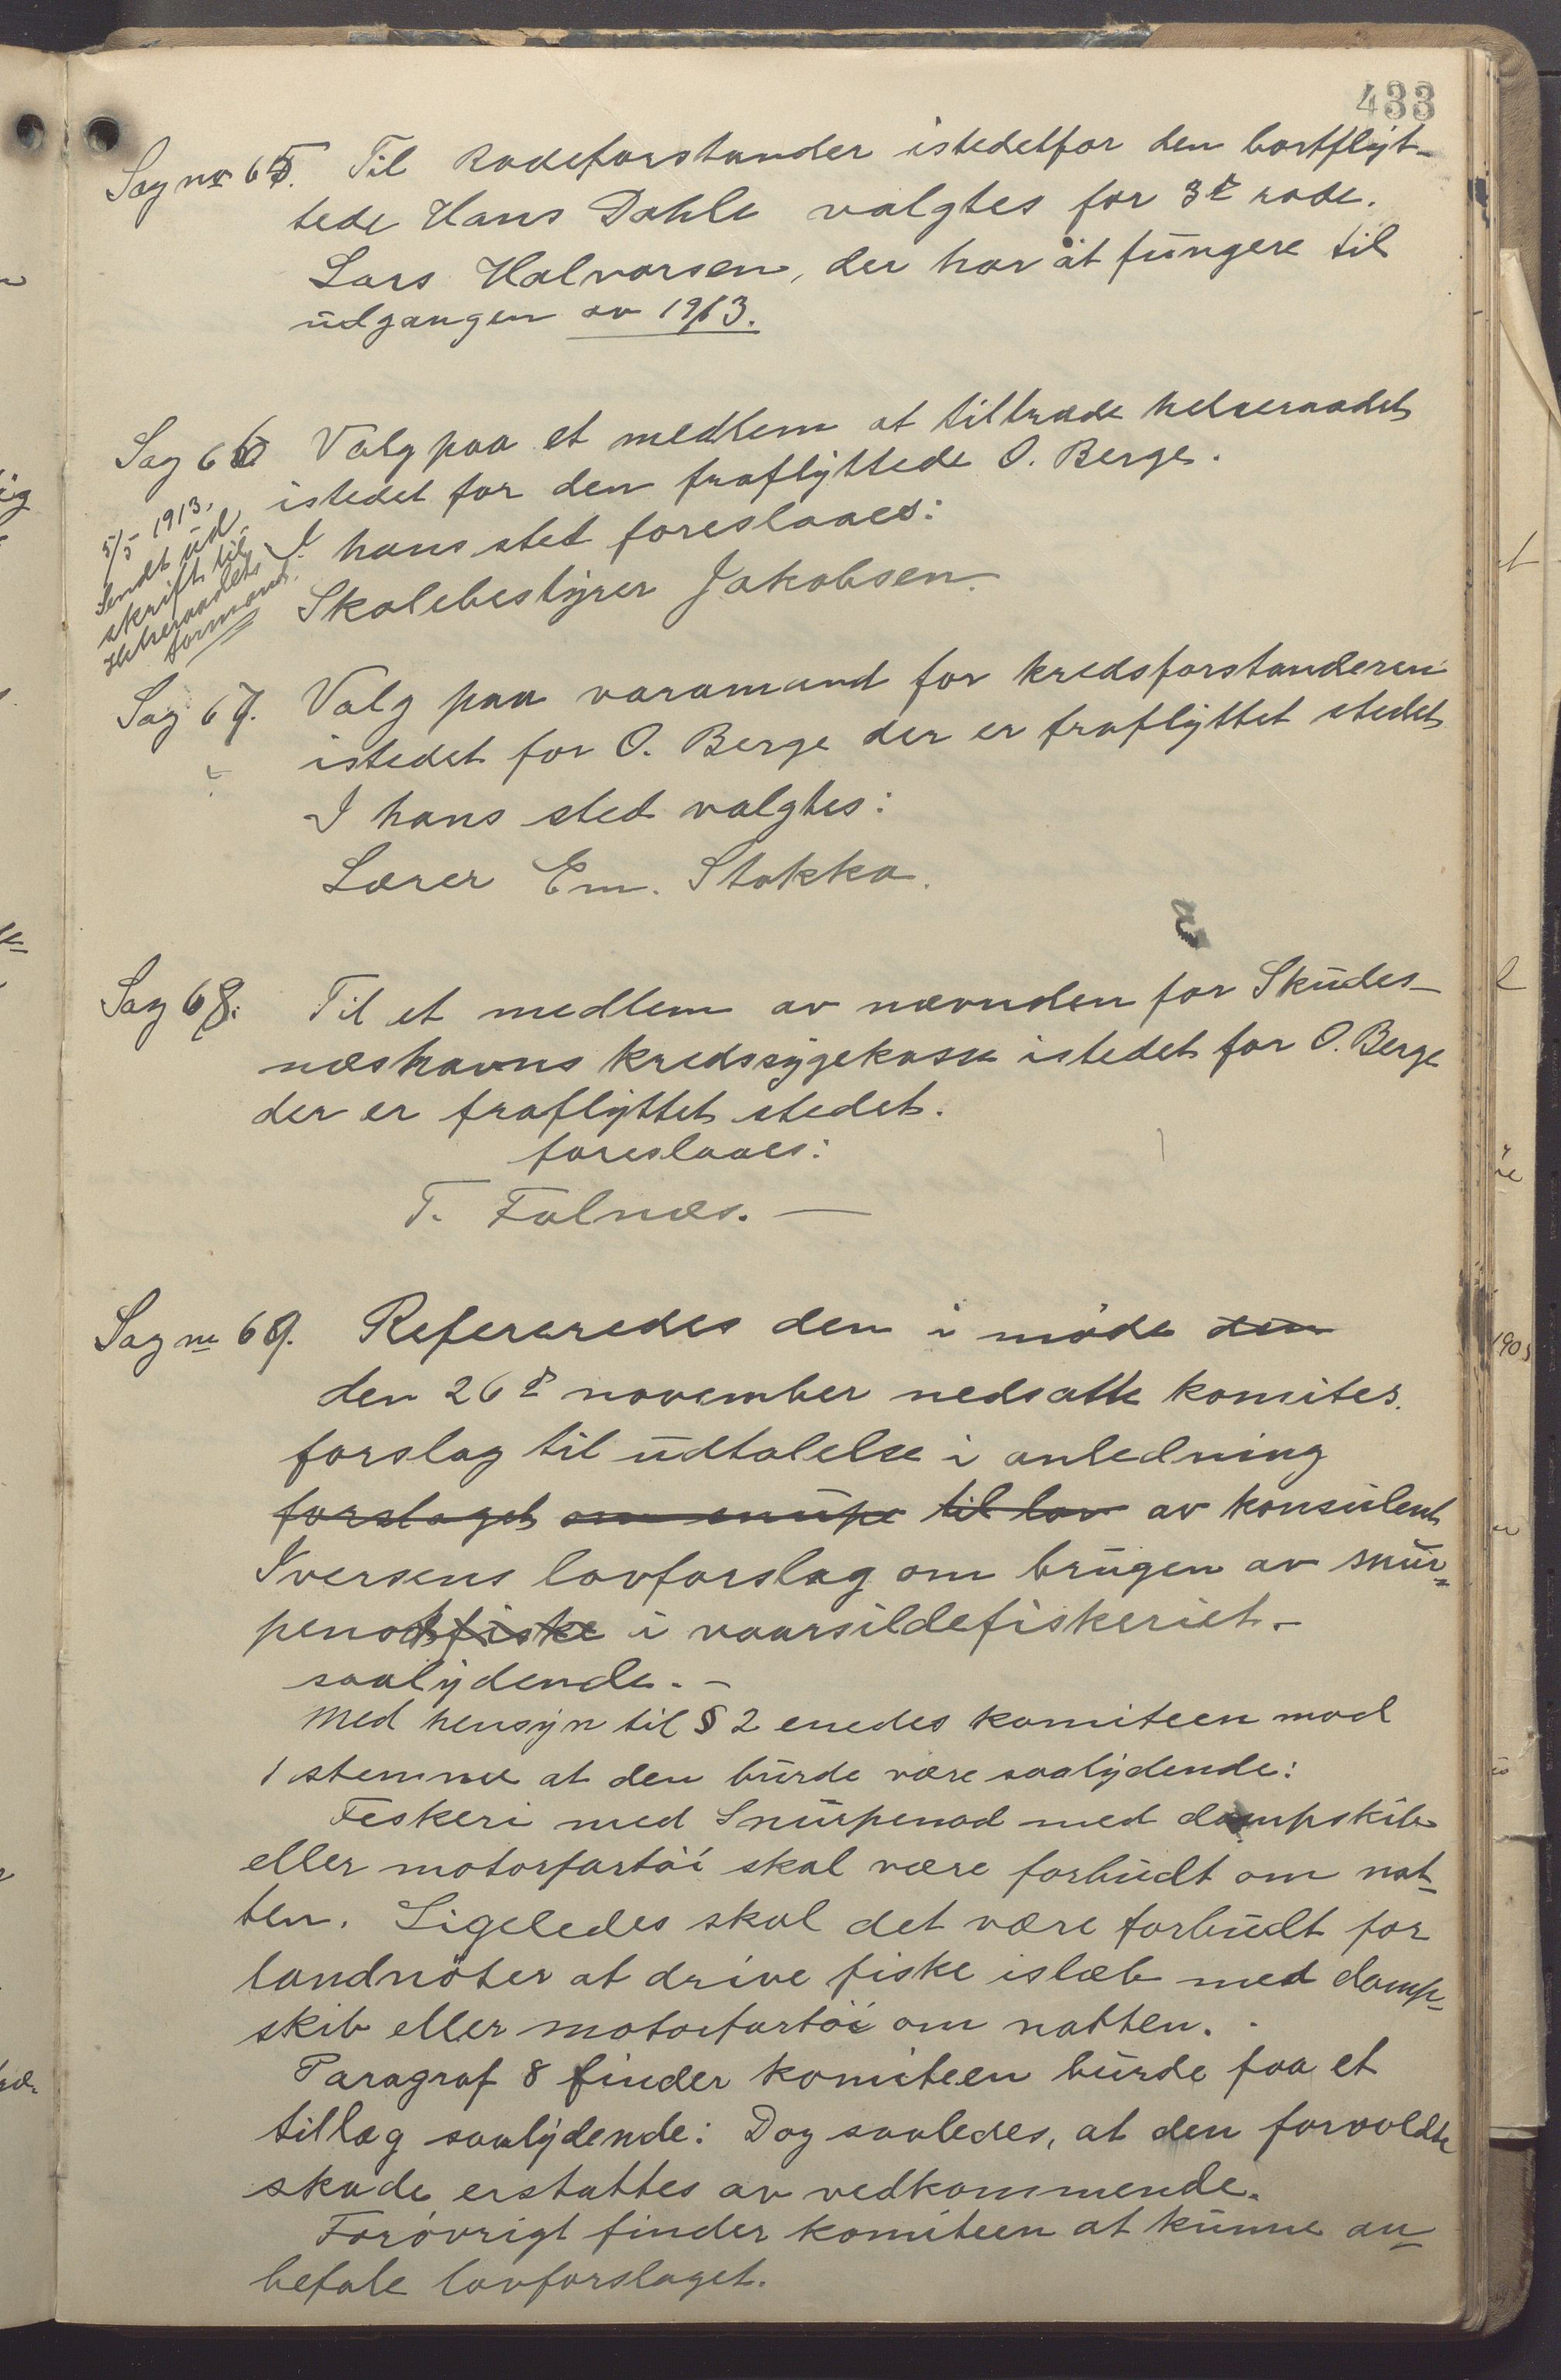 433
Sag nr 65. Til Rodeforstander istedetfor den bortflyt-
tede Hans Dahle valgtes for 3die rode.
Lars Halvorsen, der har at fungere til
udgangen av 1913.
Sag 66 Valg paa et medlem at tiltræde helseraadet
istedet for den fraflyttede O. Berge.
I hans sted foreslaaes:
Skolebestyrer Jakobsen.
5/5 1913.
Sendt ud-
skrift til
Helseraadets
formand.
Sag 67. Valg paa varamand for kredsforstanderen
istedet for O. Berge der er fraflyttet stedet
I hans sted valgtes:
Lærer Em. Stokka.
Sag 68. Til et medlem av nævnden for Skudes-
næshavns kredssygekasse istedet for O. Berge
der er fraflyttet stedet.
foreslaaes:
T. Falnæs. —
Sag nr 69. Refereredes den i møde den
den 26de november nedsatte komites
forslag til udtalelse i anledning
forslaget om snupe til lov av konsulent
Iversens lovforslag om brugen av snur-
penotfiske i vaarsildefiskeriet.-
saalydende. -
Med hensyn til § 2 enedes komiteen mod
1 stemme at den burde være saalydende:
Feskeri med Snurpenod med dampskib
eller motorfartöi skal være forbudt om nat-
ten. Ligeledes skal det være forbudt for
landnöter at drive fiske islæb med damp-
skib eller motorfartöi om natten.
Paragraf 8 finder komiteen burde faa et
tillæg saalydende: Dog saaledes, at den forvoldte
skade erstattes av vedkommende.
Forövrigt finder komiteen at kunne an-
befale lovforslaget.